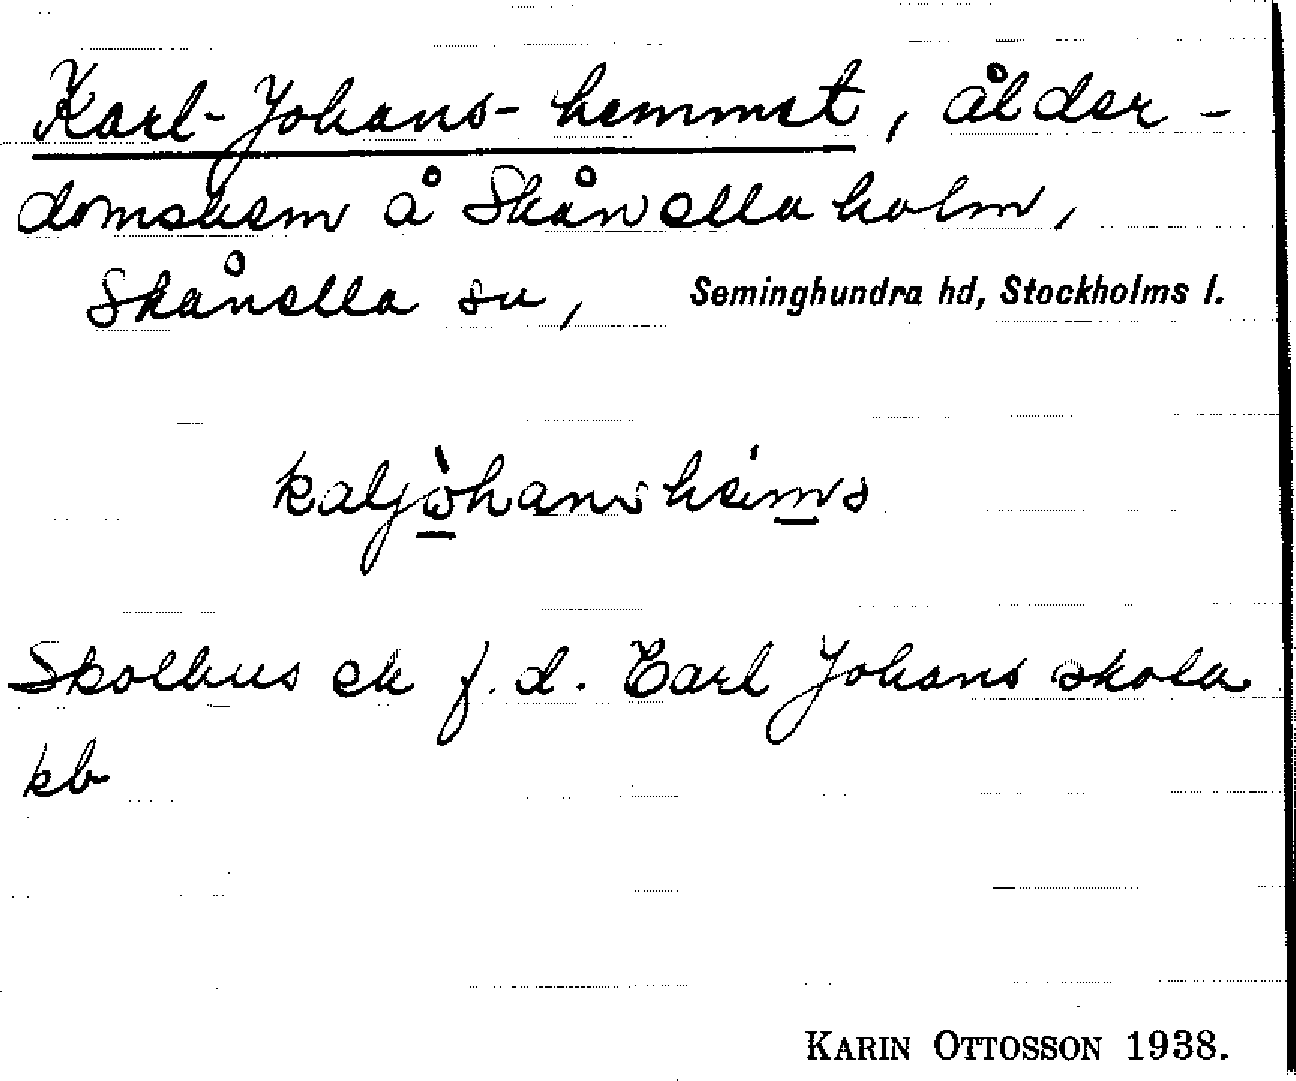 Karl-Johans-hemmet, ålder-
domshem å Skånellaholm,
Skånella sn, Seminghundra hd, Stockholms l.
kaljòhanshéims
Skolhus ek f.d. Carl Johans skola
kb
KARIN OTTOSSON 1938.